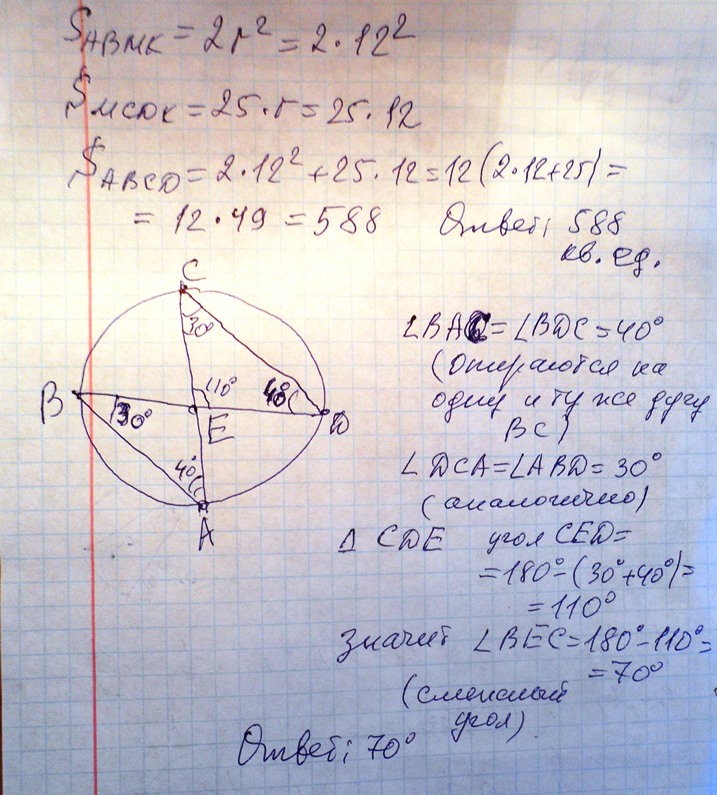 S ABMK = 2r² = 2·12²
S MCDK = 25·r = 25·12
S ABCD = 2·12² + 25·12 = 12(2·12+25) =
= 12·49 = 588 Ответ: 588
кв. ед.
C
30°
B
30°
110°
E
40°
D
40°
A
∠BAC = ∠BDC = 40°
(Опираются на
одну и ту же дугу
BC)
∠DCA = ∠ABD = 30°
(аналогично)
Δ CDE угол CED =
= 180° - (30° + 40°) =
= 110°
Значит ∠BEC = 180° - 110° =
= 70°
(смежный
угол).
Ответ: 70°